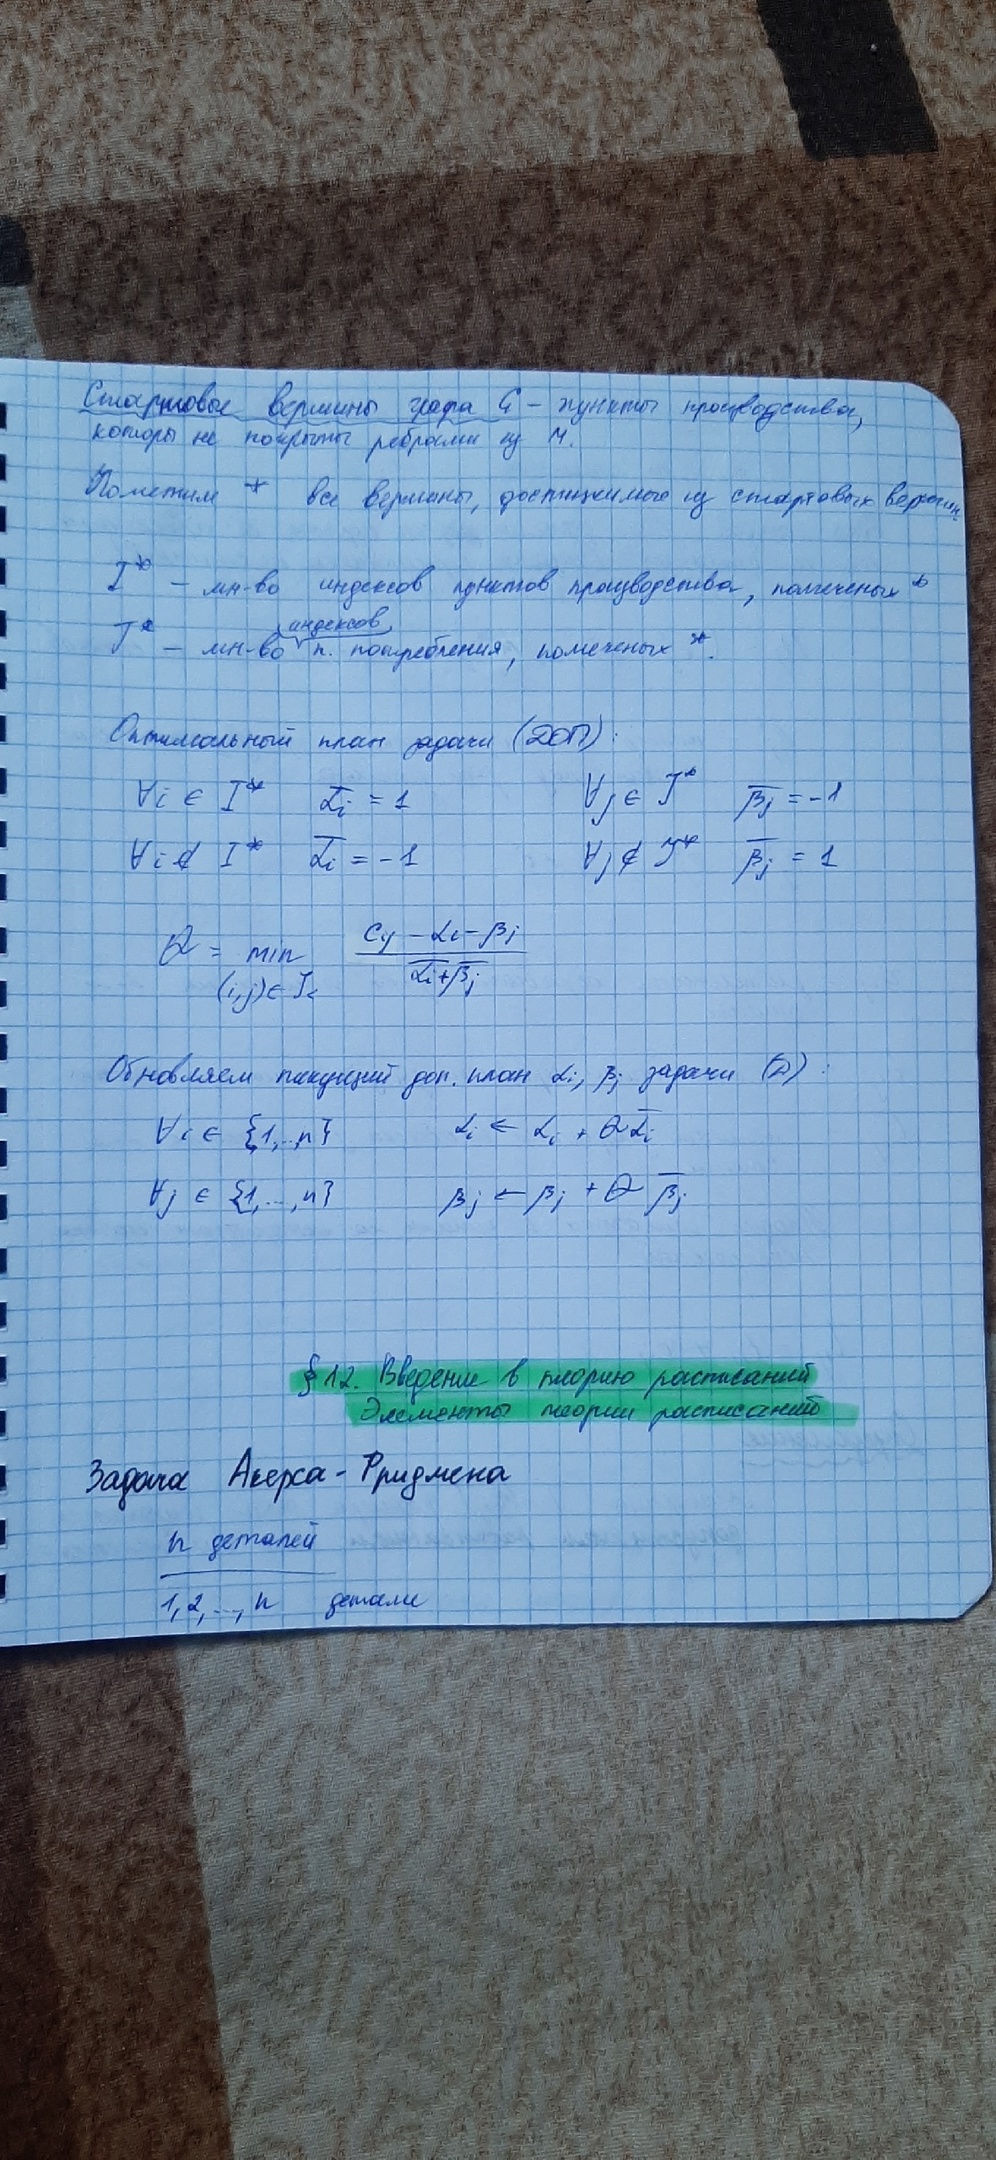 Стартовые вершины графа G – пункты производства,
которы не покрыты ребрами из M.
Пометим * все вершины, достижимые из стартовых вершин.
I* – мн-во индексов пунктов производства, помеченых *
J* – мн-во индексов п. потребления, помеченых *.
Оптимальный план задачи (ДОП):
∀i ∈ I* ᾱi = 1 ∀j ∈ J* β̄j = -1
∀i ∉ I* ᾱi = -1 ∀j ∉ J* β̄j = 1
θ = min (cij - αi - βj) / (ᾱi + β̄j)
(i,j) ∈
Обновляем текущий доп. план αi, βj задачи (D):
∀i ∈ {1,..,n} αi ← αi + θ ᾱi
∀j ∈ {1,...,n} βj ← βj + θ β̄j
§ 12. Введение в теорию расписаний
Элементы теории расписаний
Задача Акерса-Фридмена
n деталей
1,2,...,n детали